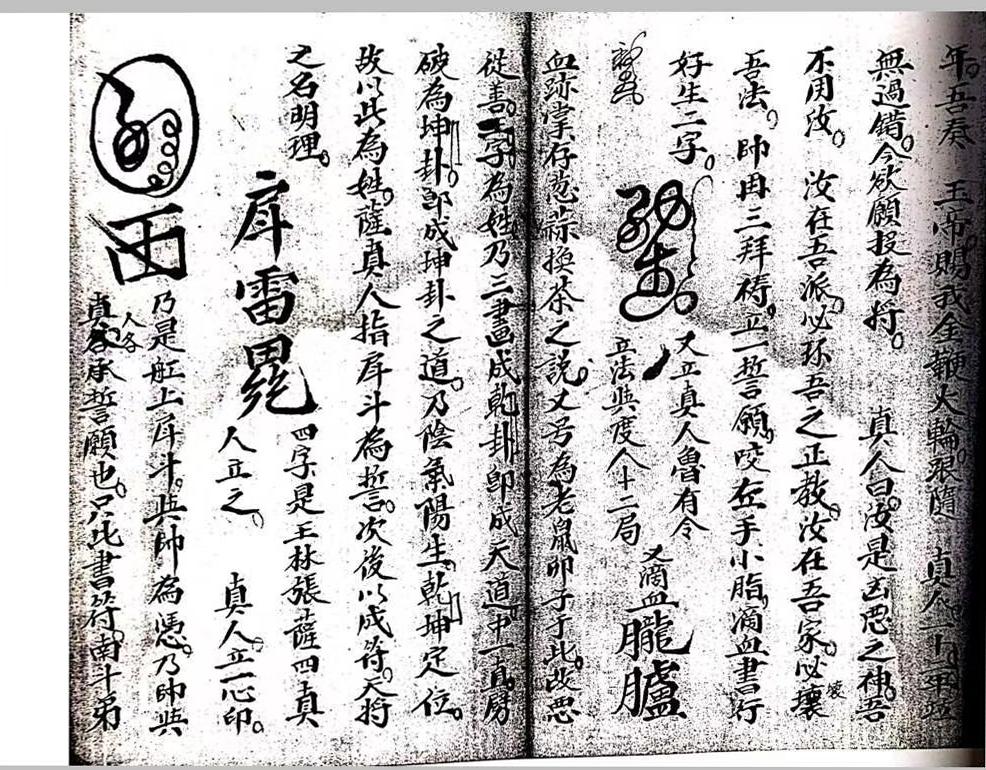 年吾奏 玉帝賜我金鞭火輪張隨 真人二十二年並
無過錯今欲願投為將 真人曰汝是凶惡之神吾
不用汝 汝在吾派必坏吾之正教汝在吾家必壞
吾法 帥再三拜禱立一誓願咬左手小脂滴血書行
好生二字 又立真人魯有令
立法與度人十二局
又滴血 朧臚
血跡掌存惹蒜換茶之說又号為老鼠卯子于此故惡
從善 字為姓乃三畫成乾卦即成天道中一直劈
破為坤卦即成坤卦之道乃陰氣陽生乾坤定位
故以此為姓薩真人指斗為誓次後以成符天將
之名明理
雷
四字是王林張薩四真
人立之 真人立心印
乃是 上 斗與帥為憑乃帥與
真人各承誓願也只此書符南斗弟